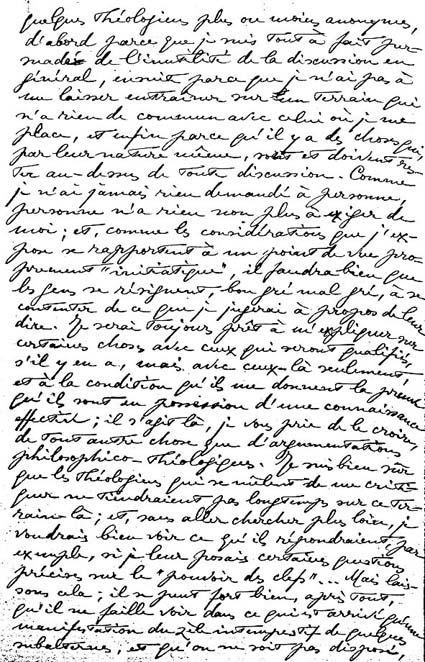 quelques théologiens plus ou moins anonymes,
d'abord parce que je suis tout à fait per-
suadé de l'inutilité de la discussion en
général, ensuite parce que je n'ai pas à
me laisser entraîner sur un terrain qui
n'a rien de commun avec celui où je me
place, et enfin parce qu'il y a des choses qui,
par leur nature même, sont et doivent res-
ter au-dessus de toute discussion. Comme
je n'ai jamais rien demandé à personne,
personne n'a rien non plus à exiger de
moi ; et, comme les considérations que j'ex-
pose se rapportent à un point de vue pro-
prement "initiatique", il faudra bien que
les gens se résignent, bon gré mal gré, à se
contenter de ce que je jugerai à propos de leur
dire. Je serai toujours prêt à m'expliquer sur
certaines choses avec ceux qui seront qualifiés,
s'il y en a, mais avec ceux-là seulement,
et à la condition qu'ils me donnent la preuve
qu'ils sont en possession d'une connaissance
effective ; il s'agit là, je vous prie de le croire,
de tout autre chose que d'argumentations
philosophico-théologiques. Je suis bien sûr
que les théologiens qui se mêlent de me criti-
quer ne tiendraient pas longtemps sur ce ter-
rain-là ; et, sans aller chercher plus loin, je
voudrais bien voir ce qu'ils répondraient, par
exemple, si je leur posais certaines questions
précises sur le "pouvoir des clefs"... Mais lais-
sons cela ; il se peut fort bien, après tout,
qu'il ne faille voir dans ce qui est arrivé qu'une
manifestation du zèle intempestif de quelques
subalternes, et qu'on ne soit pas disposé,